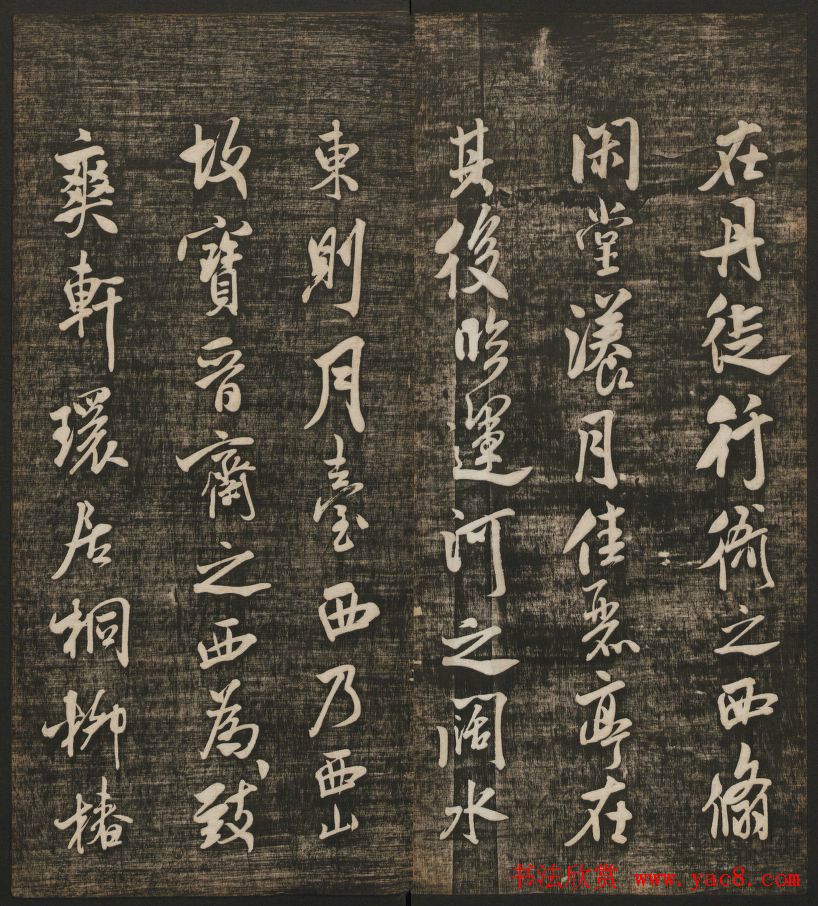 在丹徒行衙之西翛
閑堂瀁月佳麗亭在
其後臨運河之闊水
東則月臺西乃西山
故寶晉齋之西為致
爽軒環居桐柳椿
书法欣赏 www.yac8.com